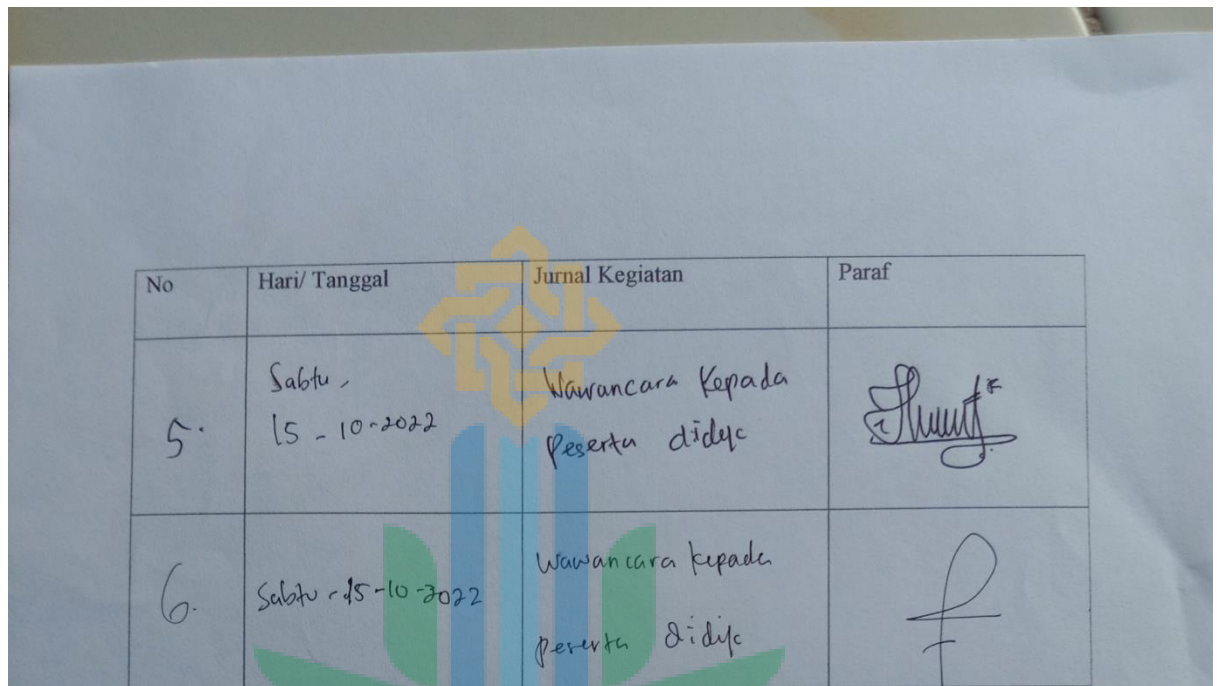 No Hari/ Tanggal Jurnal Kegiatan Paraf
5. Sabtu, Wawancara Kepada
15-10-2022 peserta didik
6. Sabtu, 15-10-2022 Wawancara kepada
peserta didik